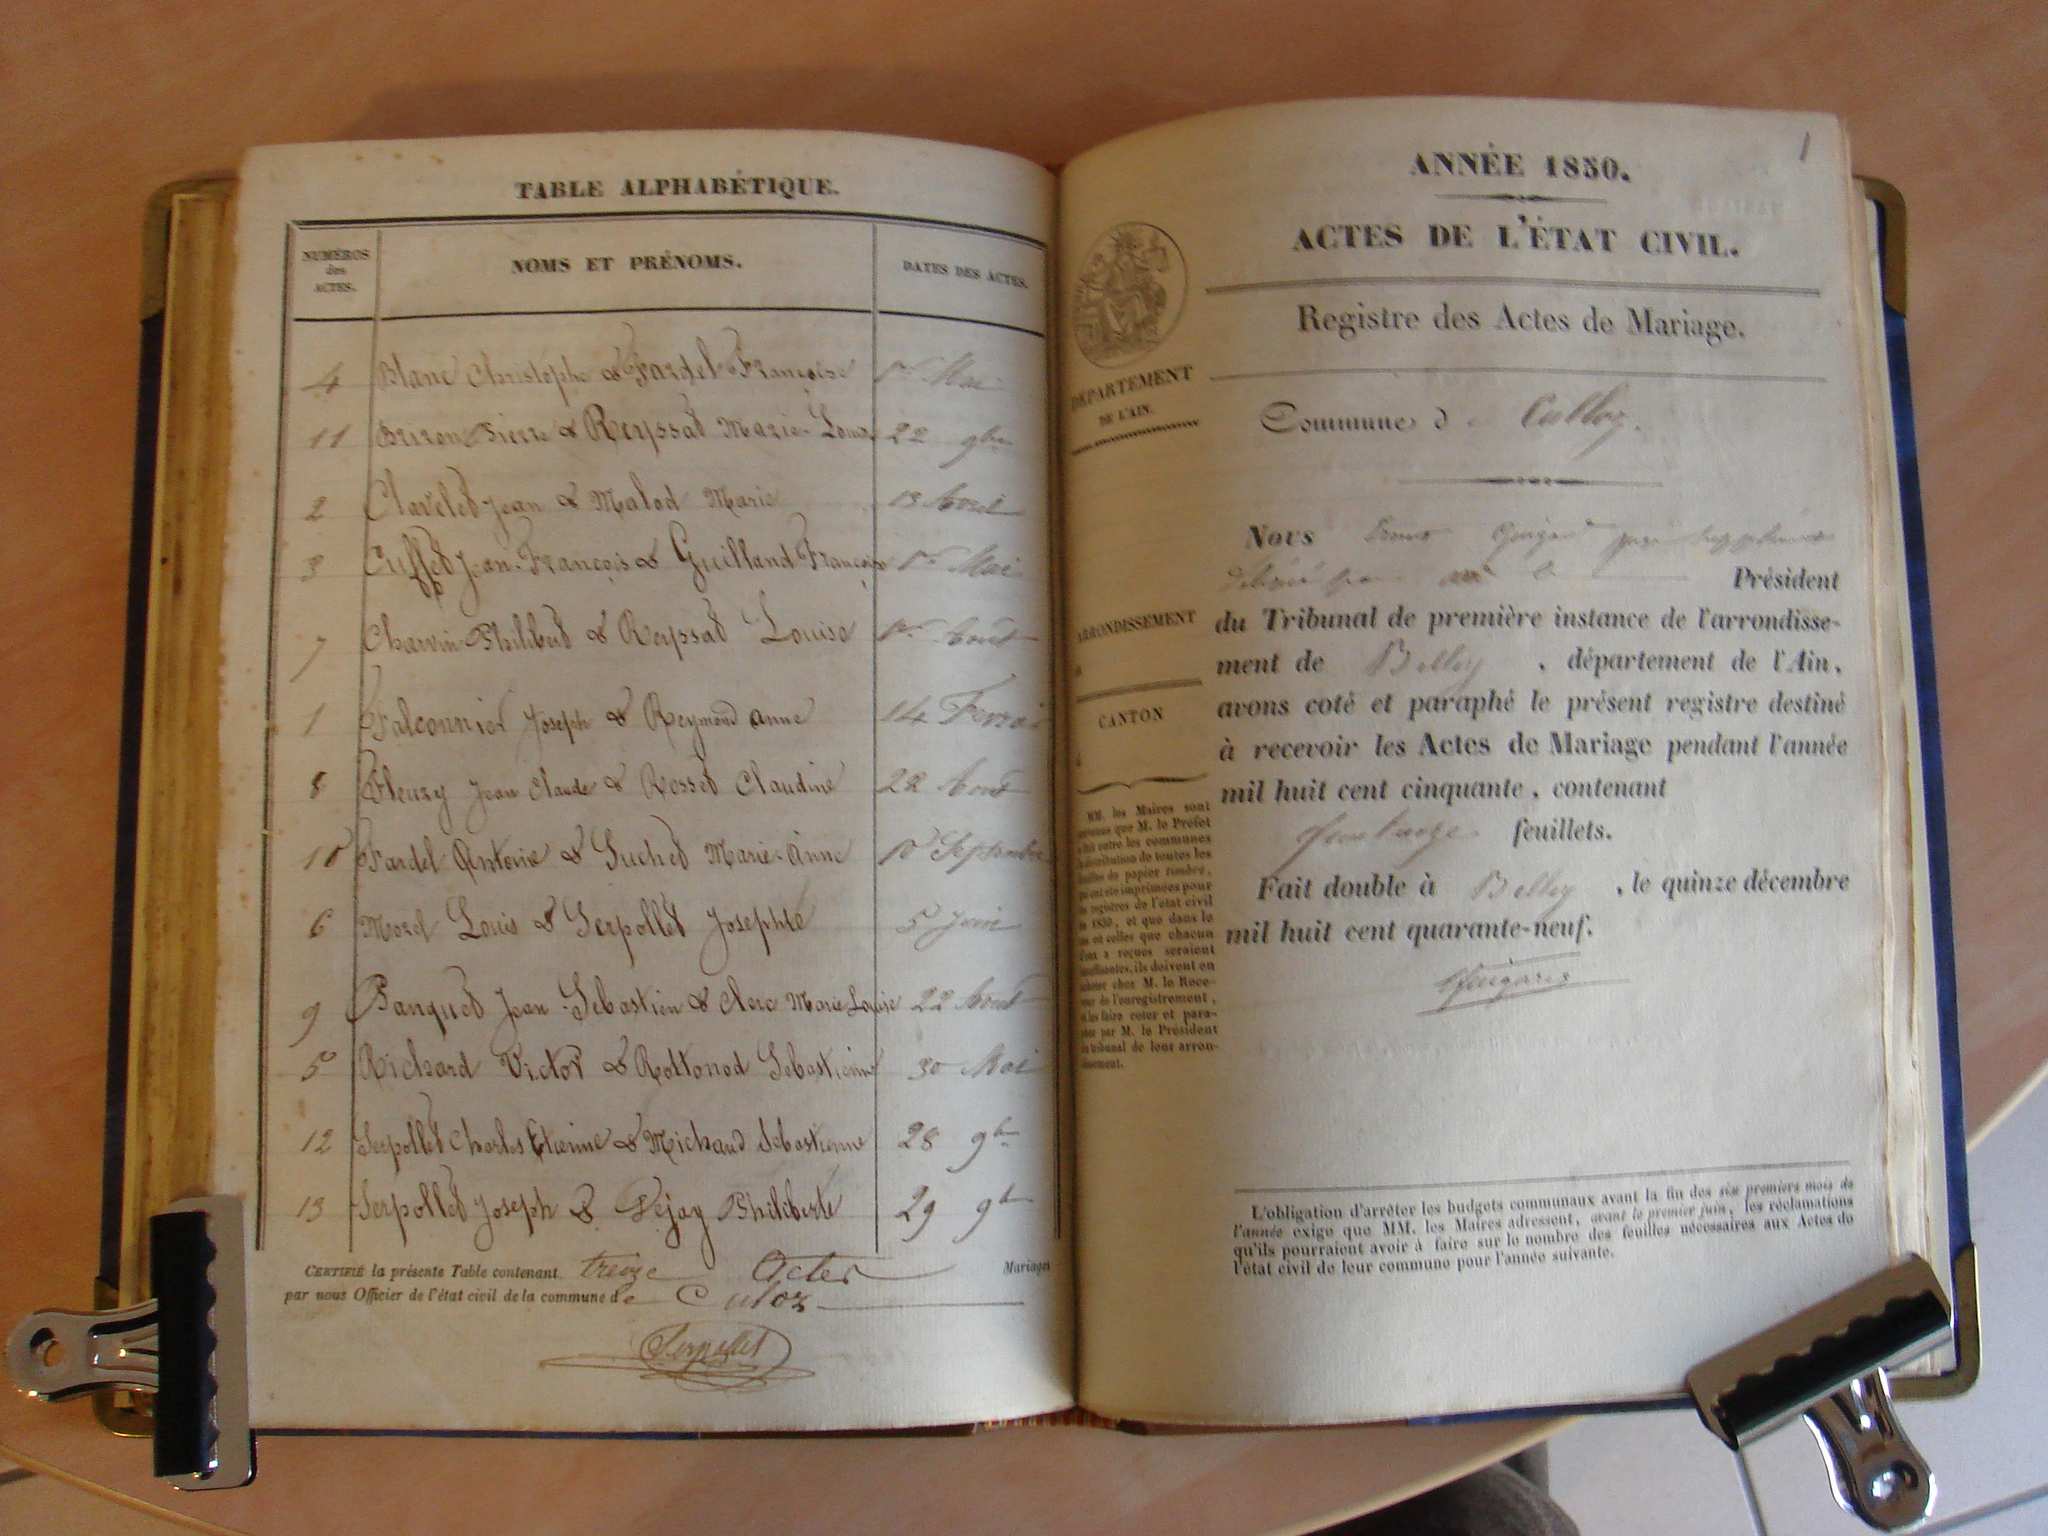 TABLE ALPHABÉTIQUE.
NUMÉROS des ACTES.
NOMS ET PRÉNOMS.
DATES DES ACTES.
4 Blanc Christophe & Fardel Françoise 1er Mai
11 Brizon Pierre & Reyssat Marie-Louise 22 9bre
2 Clavelet Jean & Malod Marie 13 Avril
3 Cuffet Jean-François & Guilland Françoise 1er Mai
7 Charvin Philibert & Reyssat Louise 1er Août
1 Falconnier Joseph & Reymond Anne 14
8 Fleury Jean Claude & Rosset Claudine 22 Août
10 Fardel Antoine & Suchet Marie-Anne 10 Septembre
6 Morel Louis & Serpollet Josephte 5 Juin
9 Panquet Jean-Sebastien & Clerc Marie Louise 22 Août
5 Richard Victor & Rottonod Sebastienne 30 Mai
12 Serpollet Charles Etienne & Michaud Sebastienne 28 9b
13 Serpollet Joseph & Dejay Philiberte 29 9b
CERTIFIÉ la présente Table contenant treize Actes Mariages
par nous Officier de l'état civil de la commune de Culoz
Serpollet
1
ANNÉE 1850.
ACTES DE L'ÉTAT CIVIL.
Registre des Actes de Mariage.
DÉPARTEMENT
DE L'AIN.
Commune d e Culloz.
ARRONDISSEMENT
CANTON
MM. les Maires sont
que M. le Préfet
a fait entre les communes
la distribution de toutes les
feuilles de papier timbré,
qui ont été imprimées pour
les registres de l'état civil
de 1850, et que dans le
cas où celles que chacun
d'eux a reçues seraient
insuffisantes, ils doivent en
acheter chez M. le Rece-
veur de l'enregistrement,
et les faire coter et para-
pher par M. le Président
du tribunal de leur arron-
dissement.
Nous juge suppléant
Président
du Tribunal de première instance de l'arrondisse-
ment de Belley, département de l'Ain,
avons coté et paraphé le présent registre destiné
à recevoir les Actes de Mariage pendant l'année
mil huit cent cinquante, contenant
feuillets.
Fait double à Belley, le quinze décembre
mil huit cent quarante-neuf.
L'obligation d'arrêter les budgets communaux avant la fin des six premiers mois de
l'année exige que MM. les Maires adressent, avant le premier juin, les réclamations
qu'ils pourraient avoir à faire sur le nombre des feuilles nécessaires aux Actes de
l'état civil de leur commune pour l'année suivante.